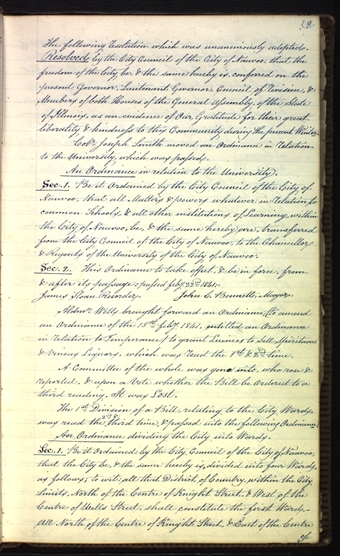 9
the following Resolution which was unanimously adopted.
Resolved by the City Council of the City of Nauvoo, that the
freedom of the City be, & the same hereby is, conferred on the
present Governor, Lieutenant Governor, Council of Revision, &
Members of both Houses of the General Assembly, of the State
of Illinois, as an evidence of our Gratitude for their great
liberality & kindness to this Community during the present Winter.
Joseph Smith moved an Ordinance in Relation
to the University, which was passed.
An Ordinance in relation to the University.
Sec. 1. Be it Ordained by the City Council of the City of
Nauvoo, that all Matters & powers whatever in Relation to
common Schools, & all other institutions of Learning, within
the City of Nauvoo, be, & the same hereby are, transferred
from the City Council of the City of Nauvoo, to the Chancellor
& Regents of the University of the City of Nauvoo.
Sec. 2. This Ordinance to take effect, & be in force, from
& after its passage. passed Feby 22nd 1841.
James Sloan Recorder. John C. Bennett, Mayor.
Alderm. Wells brought forward an Ordinance, to amend
an Ordinance of the 15th Feby 1841, entitled an Ordinance
in relation to Temperance, to grant Licences to sell Spirituous
& Vinous Liquors, which was read the 1st & 2nd time.
A Committee of the whole was gone into, who rose &
reported, & upon a Vote whether the Bill be Ordered to a
third reading, It was Lost.
The 1st Division of a Bill relating to the City Wards,
was read the 2nd & third time, & passed into the following Ordinance.
An Ordinance dividing the City into Wards.
Sec. 1. Be it Ordained by the City Council of the City of Nauvoo,
that the City be, & the same hereby is, divided into four Wards,
as follows; to wit, all that District of Country, within the City
Limits, North of the Centre of Knight Street, & West of the
Centre of Wells Street, shall constitute the first Ward.
All North of the Centre of Knight Street, & East of the Centre
of